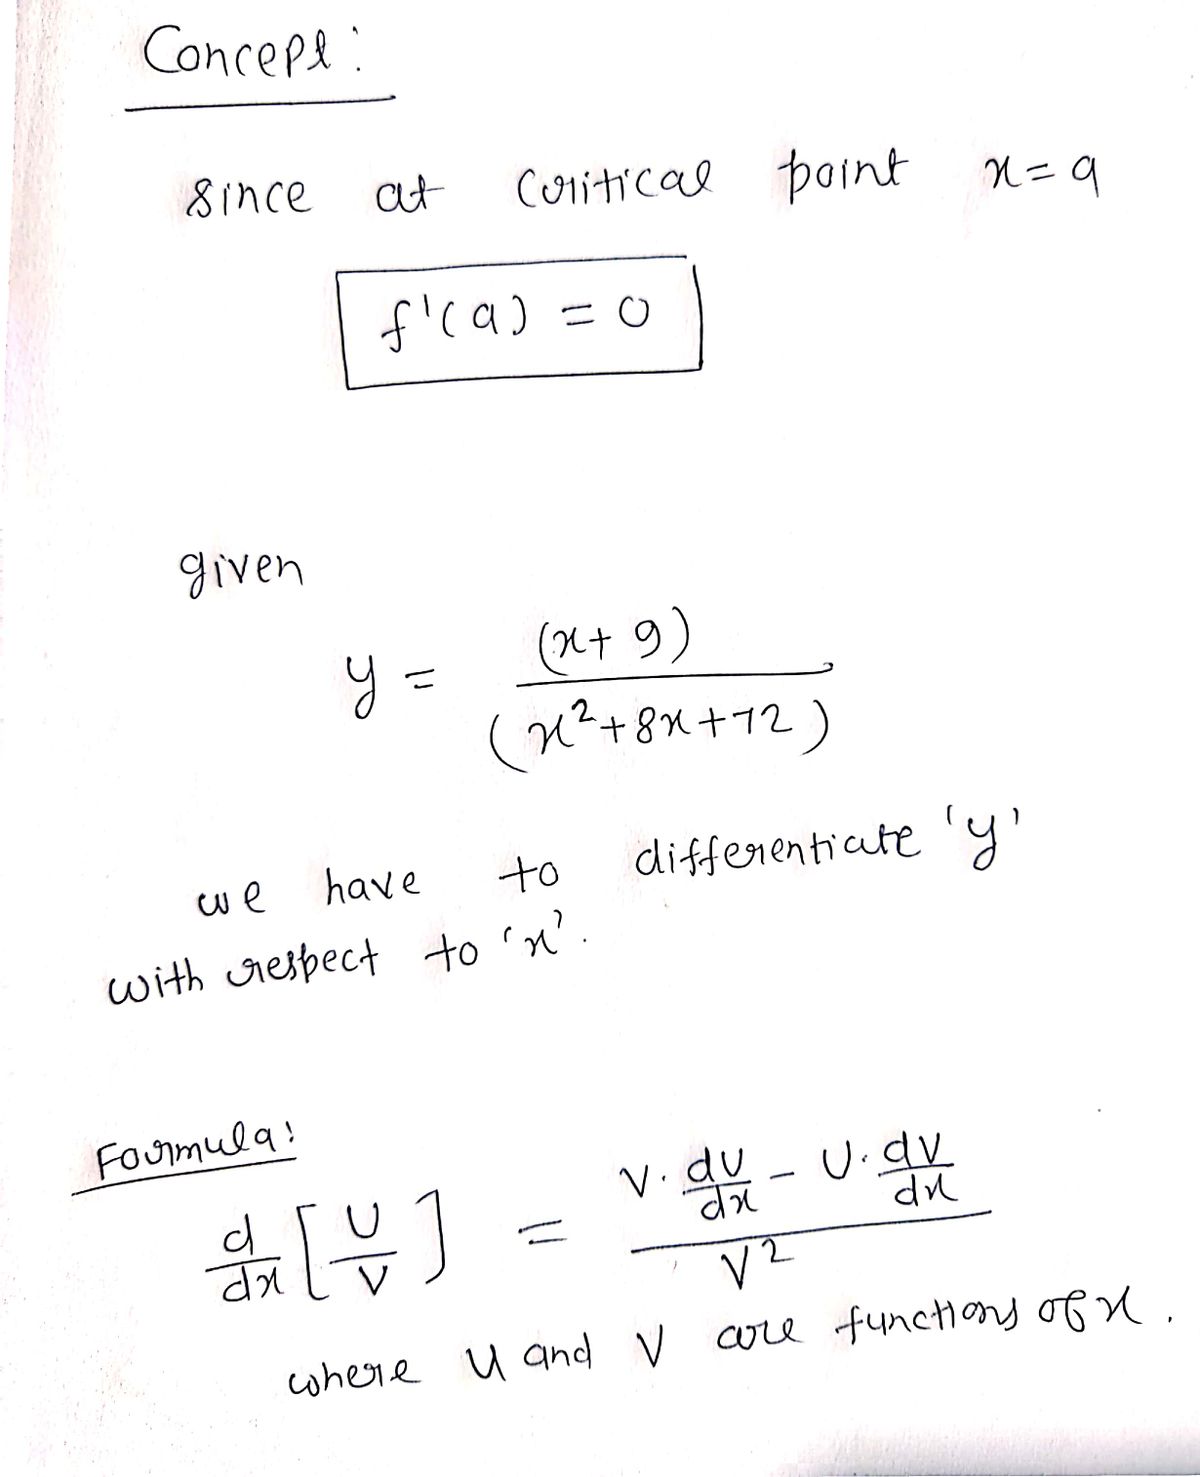 Concept:
since at critical point x = a
f'(a) = 0
given
y = (x+9) / (x²+8x+72)
we have to differentiate 'y'
with respect to 'x'.
Formula:
d/dx [U/V] = (V. dU/dx - U. dV/dx) / V²
where U and V are functions of x.